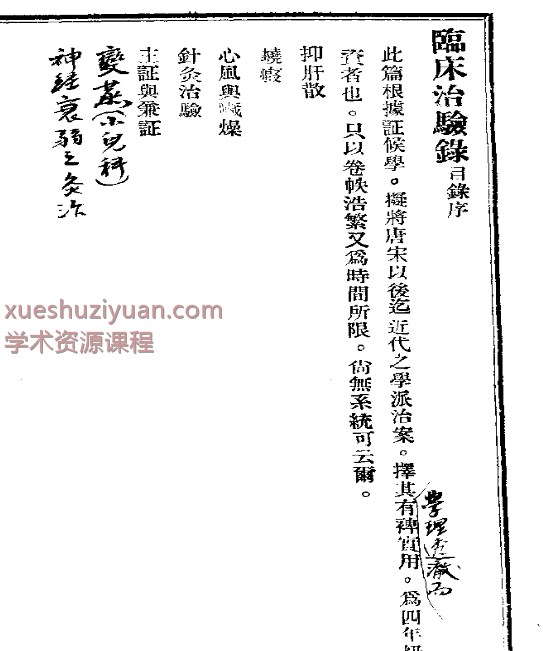 臨床治驗錄目錄序
此篇根據証候學。擬將唐宋以後迄近代之學派治案。擇其有裨實用。爲四年級
學理透徹而
資者也。只以卷帙浩繁又爲時間所限。尙無系統可云爾。
抑肝散
蟯瘕
心風與臟燥
針灸治驗
主証與兼証
變蒸(小兒科)
神経衰弱之灸治
xueshuziyuan.com
学术资源课程